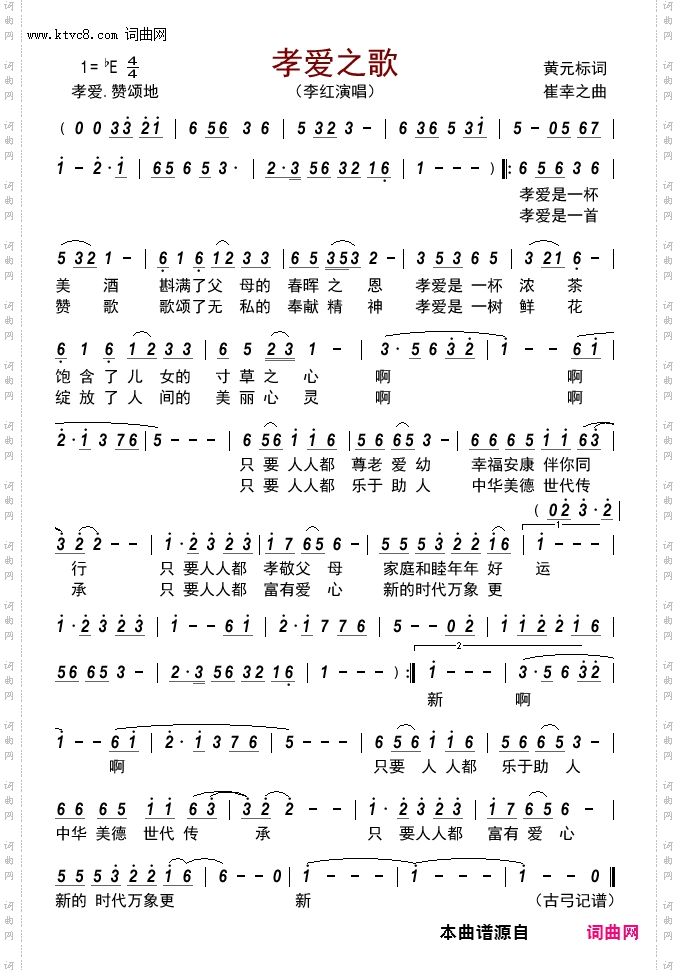 www.ktvc8.com 词曲网
孝爱之歌
1=♭E 4/4
黄元标词
孝爱.赞颂地
(李红演唱)
崔幸之曲
(0 0 33 21 | 6 56 3 6 | 5 323 - | 6 36 5 31 | 5 - 05 67
1 - 2·1 | 65 6 5 3· | 2·3 56 32 16 | 1 - - - ) ‖: 6 56 3 6
孝爱是一杯
孝爱是一首
5 32 1 - | 6 16 12 33 | 6 5 353 2 - | 35 35 6 5 | 3 21 6 -
美 酒 斟满了父 母的 春晖 之 恩 孝爱是 一杯 浓 茶
赞 歌 歌颂了无 私的 奉献 精 神 孝爱是 一树 鲜 花
6 1 6 12 33 | 6 5 23 1 - | 3·5 6 32 | 1 - - 61
饱 含 了 儿 女的 寸 草 之 心 啊 啊
绽 放 了 人 间的 美 丽 心 灵 啊 啊
2·1 3 76 | 5 - - - | 6 56 11 6 | 56 65 3 - | 66 65 11 63
只 要 人人都 尊老 爱 幼 幸福安康 伴你同
只 要 人人都 乐于 助 人 中华美德 世代传
(02 3·2 |
3 2 2 - - | 1·2 32 3 | 1 7 65 - | 555 3 22 16 | 1 - - -
1
行 只 要人人都 孝敬父 母 家庭和睦年年 好 运
承 只 要人人都 富有爱 心 新的时代万象 更
1·2 32 3 | 1 - - 61 | 2·1 77 6 | 5 - - 02 | 11 22 16
56 65 3 - | 2·3 56 32 16 | 1 - - - ) :‖ 1 - - - | 3·5 6 32
2
新 啊
1 - - 61 | 2·1 3 76 | 5 - - - | 6 56 11 6 | 56 65 3 -
啊 只要 人 人都 乐于助 人
66 65 11 63 | 3 2 2 - - | 1·2 32 3 | 1 7 65 -
中华 美德 世代 传 承 只 要人人都 富有 爱 心
55 53 22 1 6 | 6 - - 0 | 1 - - - | 1 - - - | 1 - - 0 ‖
新的 时代万象更 新 (古弓记谱)
本曲谱源自 词曲网